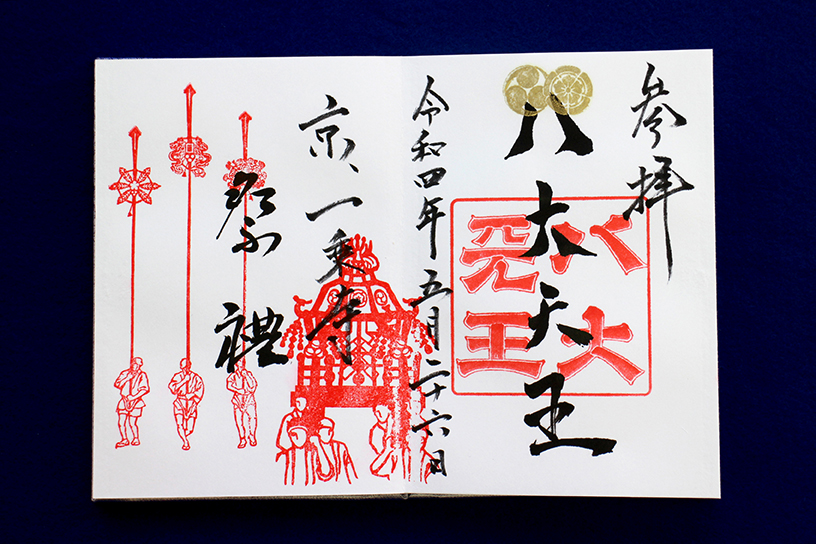 参拝
八大天王
八大
天王
令和四年五月二十六日
京、一乗寺
祭禮